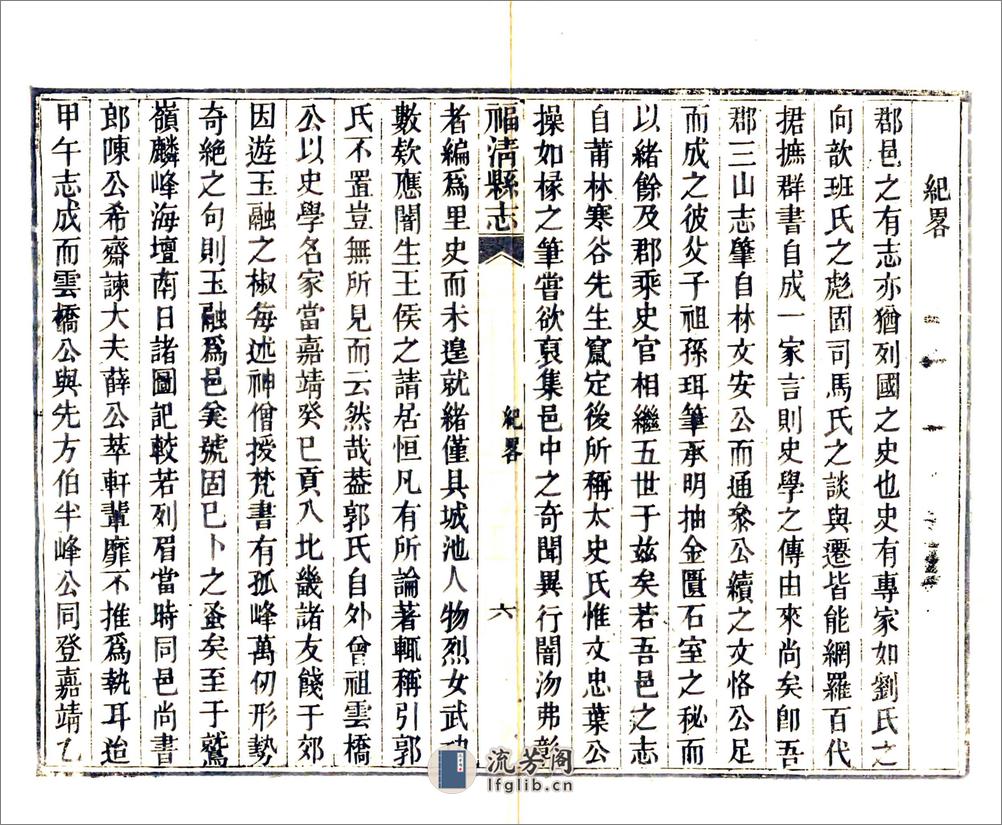 紀畧
郡邑之有志亦猶列國之史也史有專家如劉氏之
向歆班氏之彪固司馬氏之談與遷皆能網羅百代
捃摭群書自成一家言則史學之傳由來尚矣卽吾
郡三山志肇自林文安公而通叅公續之文恪公足
而成之彼父子祖孫珥筆承明抽金匱石室之秘而
以緒餘及郡乘史官相繼五世于兹矣若吾邑之志
自莆林寒谷先生竄定後所稱太史氏惟文忠葉公
操如椽之筆嘗欲裒集邑中之奇聞異行闇沕弗彰
福清縣志
紀畧
六
者編爲里史而未遑就緒僅具城池人物烈女武功
數欵應闇生王侯之請居恒凡有所論著輒稱引郭
氏不置豈無所見而云然哉葢郭氏自外曾祖雲橋
公以史學名家當嘉靖癸巳貢入北畿諸友餞于郊
因遊玉融之椒每述神僧授梵書有孤峰萬仞形勢
奇絶之句則玉融爲邑矣號固巳卜之蚤矣至于鷲
嶺麟峰海壇南日諸圖記較若列眉當時同邑尚書
郎陳公希齋諫大夫薛公萃軒輩靡不推爲執耳迨
甲午志成而雲橋公與先方伯半峰公同登嘉靖乙
流芳阁
lfglib.cn